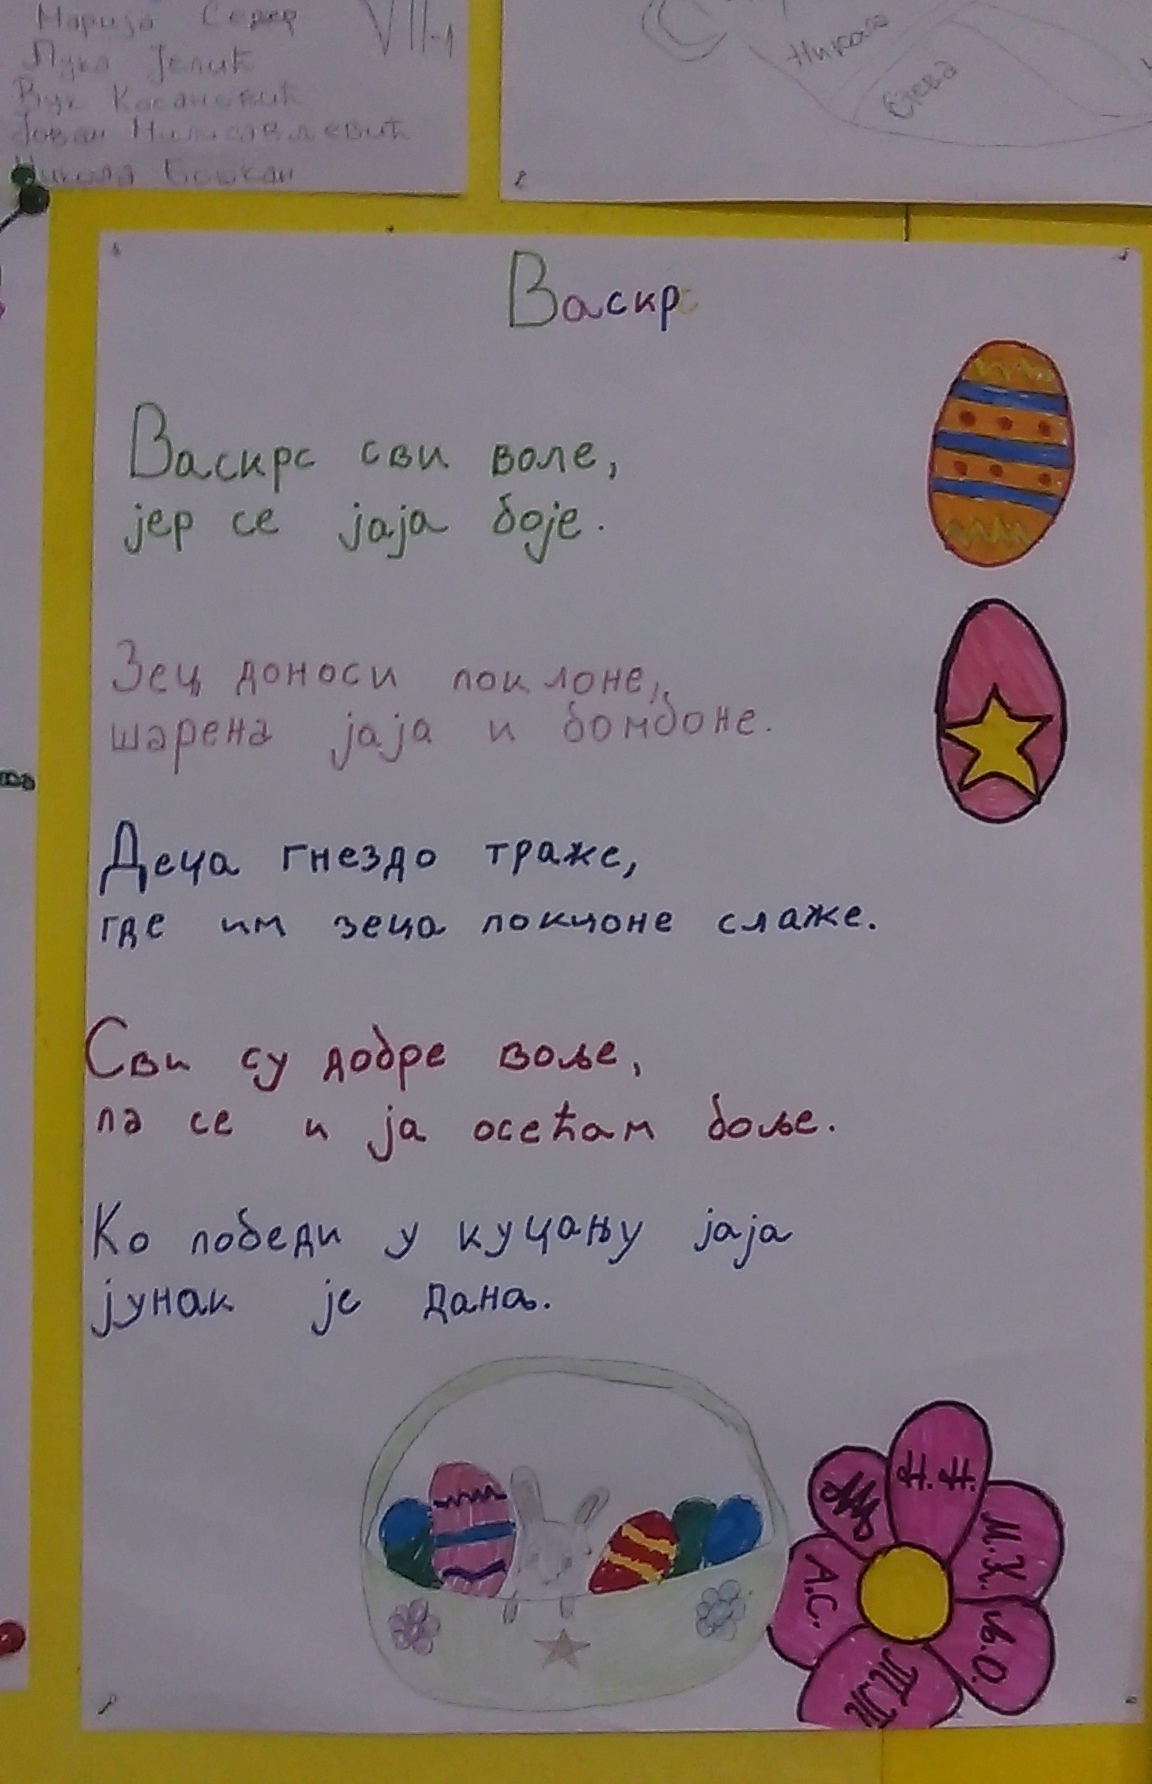 Марија Седер
VII-1
Лука Јелић
Вук Касановић
Јован Милисављевић
Никола Бошкан
Никола
Стева
Васкрс
Васкрс сви воле,
јер се јаја боје.
Зец доноси поклоне,
шарена јаја и бомбоне.
Деца гнездо траже,
где им зеца поклоне слаже.
Сви су добре воље,
па се и ја осећам боље.
Ко победи у куцању јаја
јунак је дана.
Н.Н.
М.К.
А.С.